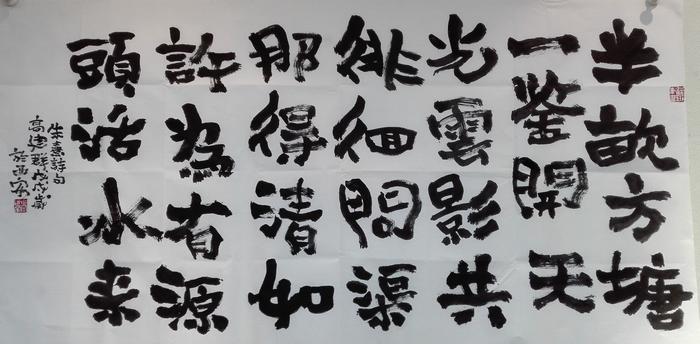 半畝方塘
一鉴開天
光雲影共
徘徊問渠
那得清如
許為有源
頭活水来
朱熹詩句
高建群戊戌歲
於西安